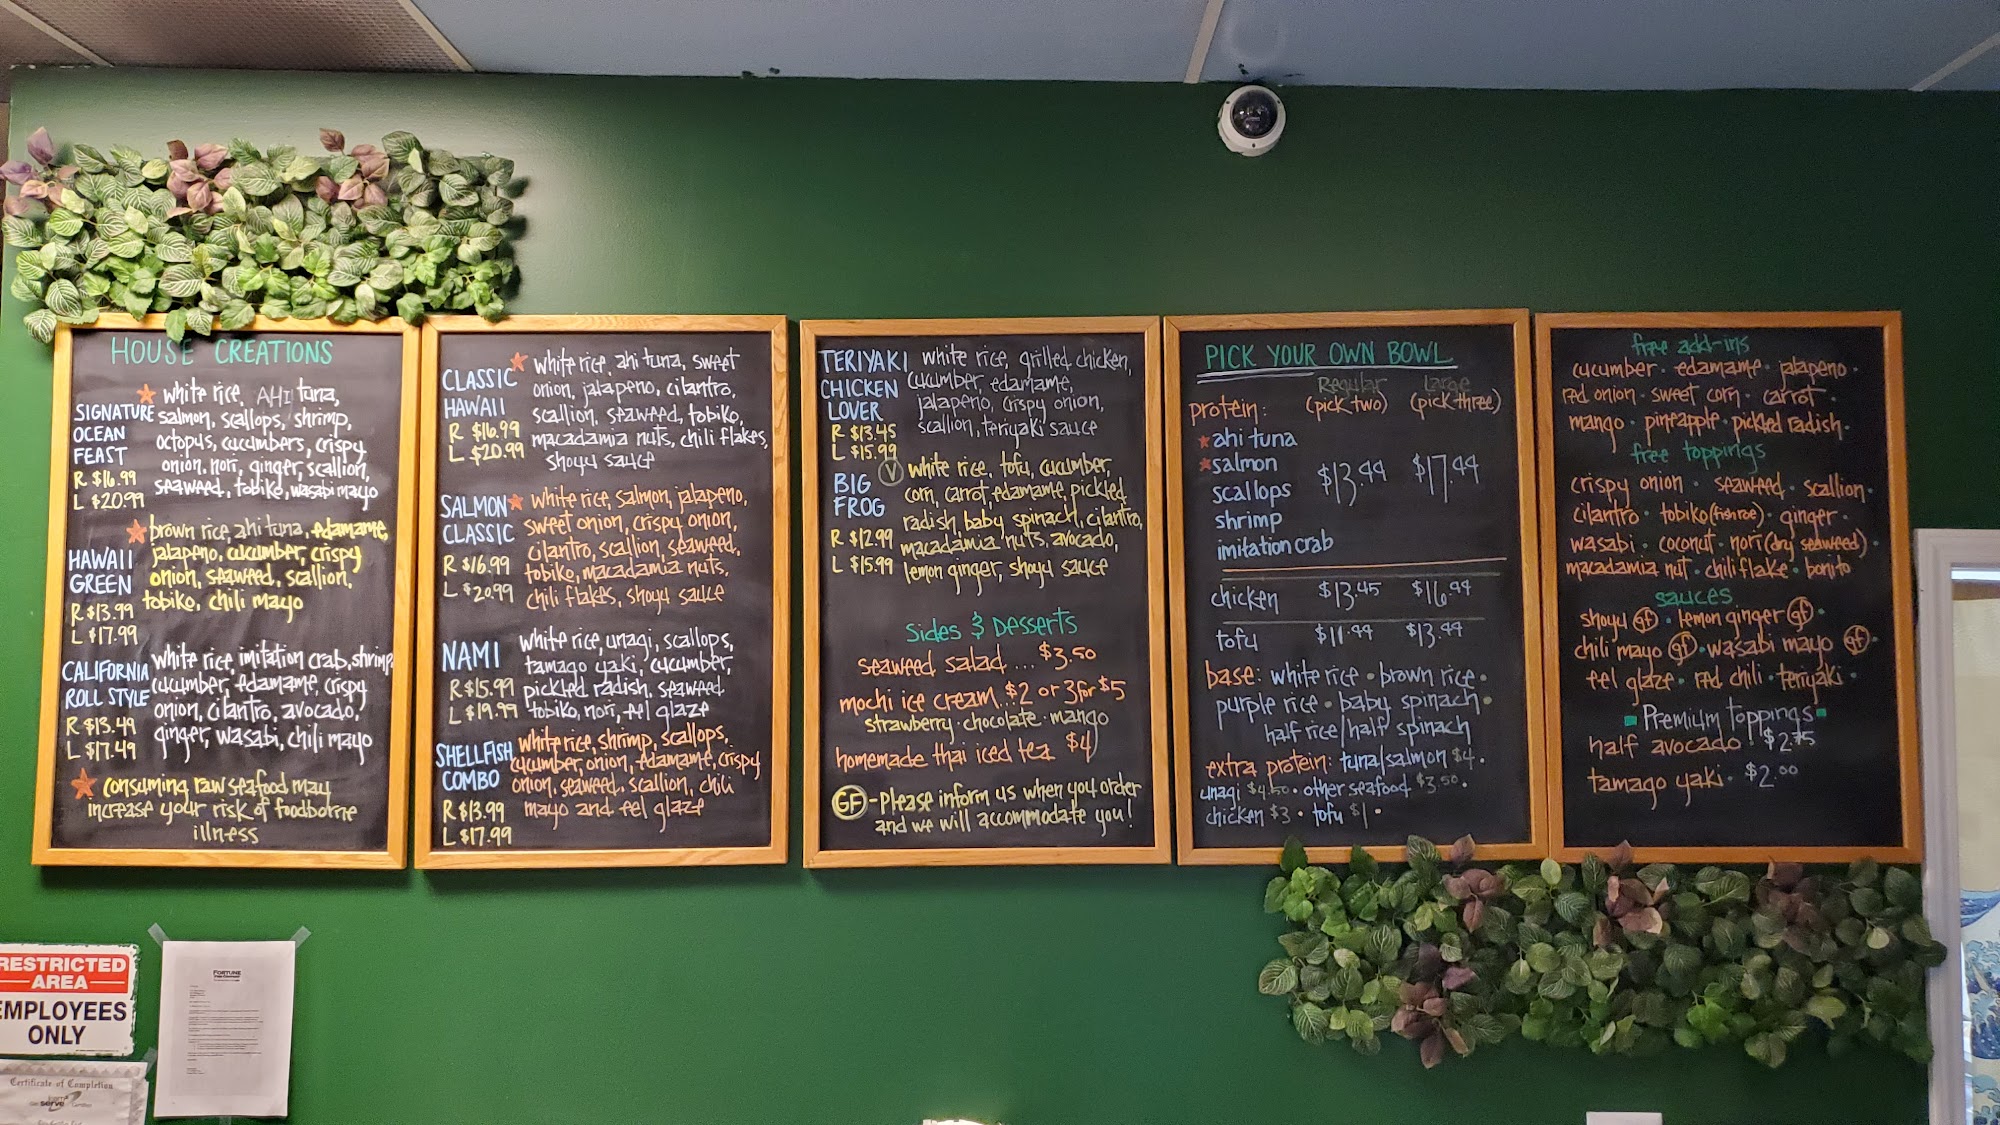 HOUSE CREATIONS
SIGNATURE
OCEAN
FEAST
R $16.99
L $20.99
white rice, AHI tuna,
salmon, scallops, shrimp,
octopus, cucumbers, crispy
onion, nori, ginger, scallion,
seaweed, tobiko, wasabi mayo
HAWAII
GREEN
R $13.99
L $17.99
brown rice, ahi tuna, edamame,
jalapeno, cucumber, crispy
onion, seaweed, scallion,
tobiko, chili mayo
CALIFORNIA
ROLL STYLE
R $13.49
L $17.49
white rice, imitation crab, shrimp,
cucumber, edamame, crispy
onion, cilantro, avocado,
ginger, wasabi, chili mayo
consuming raw seafood may
increase your risk of foodborne
illness
CLASSIC
HAWAII
R $16.99
L $20.99
white rice, ahi tuna, sweet
onion, jalapeno, cilantro,
scallion, seaweed, tobiko,
macadamia nuts, chili flakes,
shoyu sauce
SALMON
CLASSIC
R $16.99
L $20.99
white rice, salmon, jalapeno,
sweet onion, crispy onion,
cilantro, scallion, seaweed,
tobiko, macadamia nuts,
chili flakes, shoyu sauce
NAMI
R $15.99
L $19.99
white rice, unagi, scallops,
tamago yaki, cucumber,
pickled radish, seaweed
tobiko, nori, eel glaze
SHELLFISH
COMBO
R $13.99
L $17.99
white rice, shrimp, scallops,
cucumber, onion, edamame, crispy
onion, seaweed, scallion, chili
mayo and eel glaze
TERIYAKI
CHICKEN
LOVER
R $13.45
L $15.99
white rice, grilled chicken,
cucumber, edamame,
jalapeno, crispy onion,
scallion, teriyaki sauce
V
BIG
FROG
R $12.99
L $15.99
white rice, tofu, cucumber,
corn, carrot, edamame, pickled
radish, baby spinach, cilantro,
macadamia nuts, avocado,
lemon ginger, shoyu sauce
Sides & Desserts
seaweed salad ... $3.50
mochi ice cream...$2 or 3 for $5
strawberry · chocolate · mango
homemade thai iced tea $4
GF - Please inform us when you order
and we will accommodate you!
PICK YOUR OWN BOWL
Regular Large
protein: (pick two) (pick three)
ahi tuna
salmon
scallops
shrimp
imitation crab
$13.99 $17.99
chicken $13.45 $16.99
tofu $11.99 $13.99
base: white rice · brown rice ·
purple rice · baby spinach ·
half rice/half spinach
extra protein: tuna/salmon $4 ·
unagi $4.50 · other seafood $3.50 ·
chicken $3 · tofu $1 ·
free add-ins
cucumber · edamame · jalapeno ·
red onion · sweet corn · carrot ·
mango · pineapple · pickled radish ·
free toppings
crispy onion · seaweed · scallion ·
cilantro · tobiko (fish roe) · ginger ·
wasabi · coconut · nori (dry seaweed) ·
macadamia nut · chili flake · bonito
sauces
shoyu GF · lemon ginger GF ·
chili mayo GF · wasabi mayo GF ·
eel glaze · red chili · teriyaki ·
Premium toppings
half avocado · $2.75
tamago yaki · $2.00
RESTRICTED
AREA
EMPLOYEES
ONLY
FORTUNE
Certificate of Completion